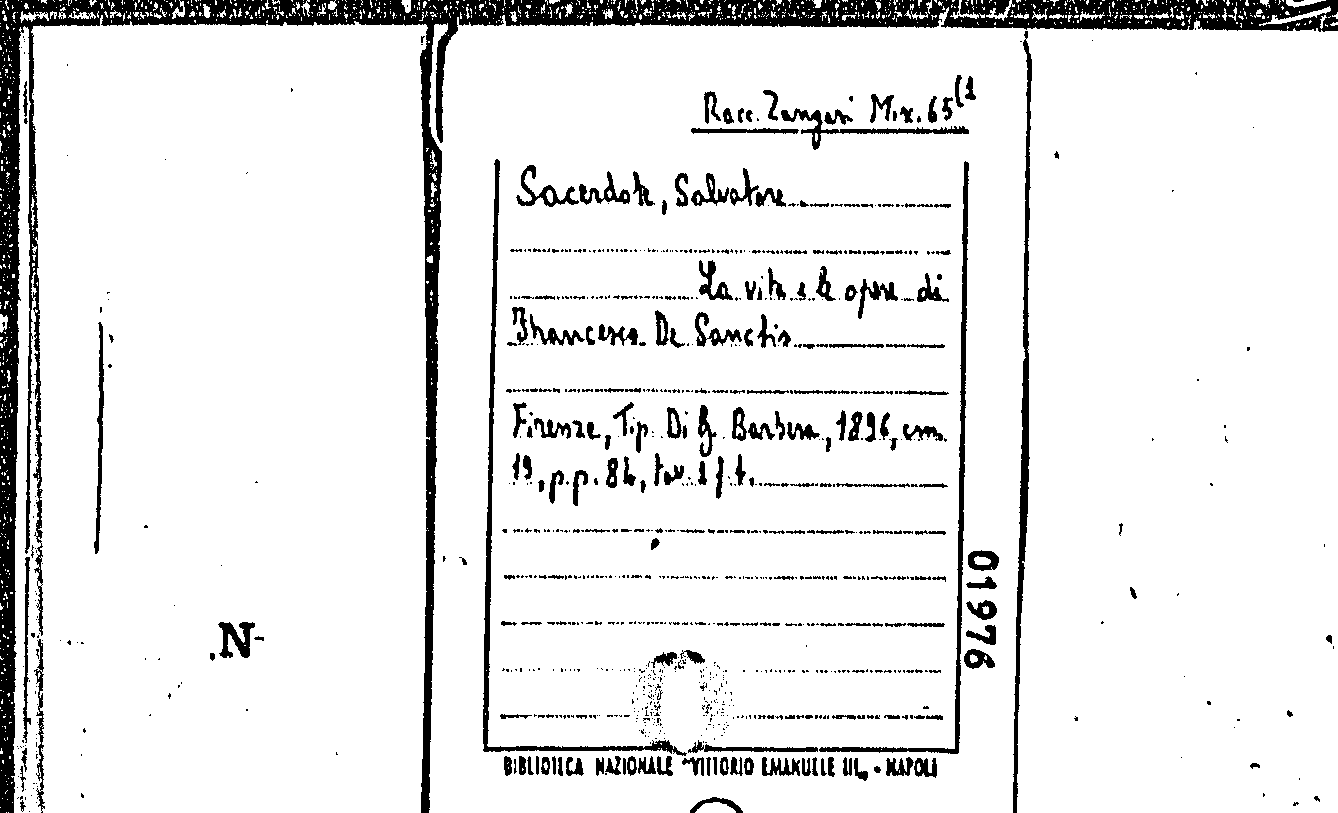 Racc. Zangari Mix. 65(1
Sacerdote, Salvatore
La vita e le opere di
Francesco De Sanctis
Firenze, Tip. Di G. Barbera, 1896, cm.
19, p.p. 86, tav. 1 f.t.
01976
.N-
BIBLIOTECA NAZIONALE "VITTORIO EMANUELE III" - NAPOLI